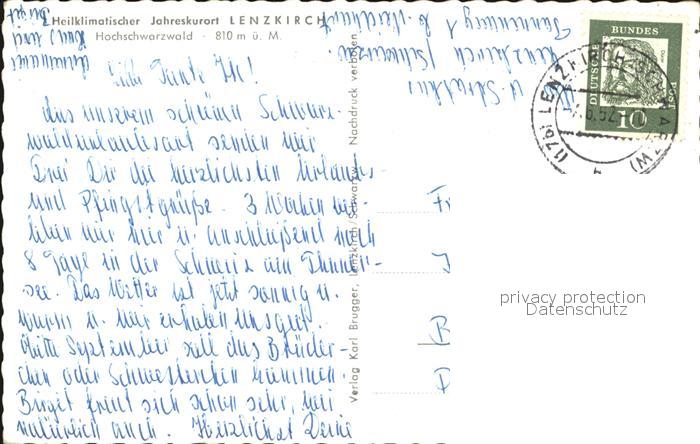 Heilklimatischer Jahreskurort LENZKIRCH
Hochschwarzwald · 810 m ü. M.
Liebe Tante
Aus unserem schönen Schwarz-
senden wir
Drei Dir die herzlichsten Urlaubs-
und Pfingstgrüße. 3 Wochen ver-
leben wir hier u. anschließend noch
8 Tage in der Schweiz am Thuner-
see. Das Wetter ist jetzt sonnig u.
warm u. wir erholen uns gut.
Mitte September soll das Brüder-
chen oder Schwesterchen kommen.
Birgit freut sich schon sehr, wir
natürlich auch. Herzlichst Deine
Annemarie
Birgit
Verlag Karl Brugger, Lenzkirch/Schwarzw. Nachdruck verboten
Lenzkirch
DEUTSCHE BUNDESPOST
10
(17b) LENZKIRCH
Fr
B
privacy protection
Datenschutz